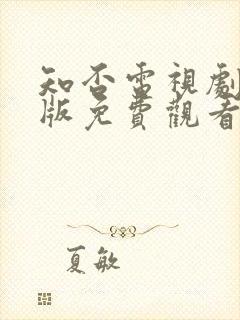 知否電視劇
版免費觀看
夏敏